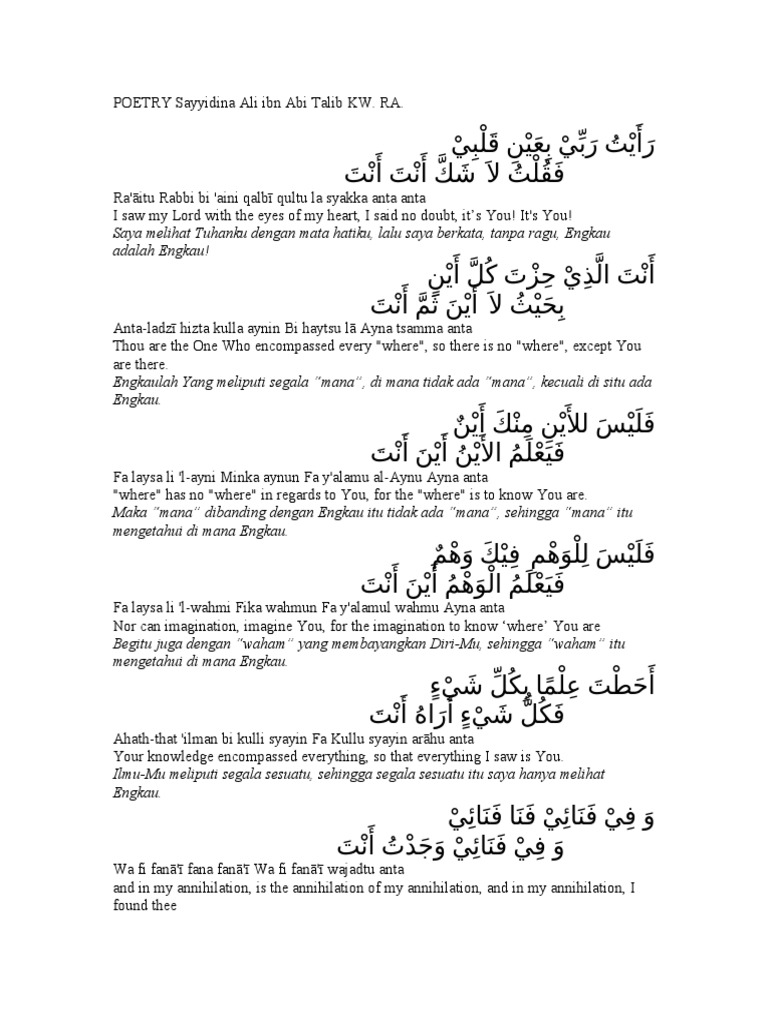 POETRY Sayyidina Ali ibn Abi Talib KW. RA.
رَأَيْتُ رَبِّيْ بِعَيْنِ قَلْبِيْ
فَقُلْتُ لاَ شَكَّ أَنْتَ أَنْتَ
Ra'āitu Rabbi bi 'aini qalbī qultu la syakka anta anta
I saw my Lord with the eyes of my heart, I said no doubt, it’s You! It's You!
Saya melihat Tuhanku dengan mata hatiku, lalu saya berkata, tanpa ragu, Engkau
adalah Engkau!
أَنْتَ الَّذِيْ حِزْتَ كُلَّ أَيْنٍ
بِحَيْثُ لاَ أَيْنَ ثَمَّ أَنْتَ
Anta-ladzī hizta kulla aynin Bi haytsu lā Ayna tsamma anta
Thou are the One Who encompassed every "where", so there is no "where", except You
are there.
Engkaulah Yang meliputi segala “mana”, di mana tidak ada “mana”, kecuali di situ ada
Engkau.
فَلَيْسَ للأَيْنِ مِنْكَ أَيْنٌ
فَيَعْلَمُ الأَيْنُ أَيْنَ أَنْتَ
Fa laysa li 'l-ayni Minka aynun Fa y'alamu al-Aynu Ayna anta
"where" has no "where" in regards to You, for the "where" is to know You are.
Maka “mana” dibanding dengan Engkau itu tidak ada “mana”, sehingga “mana” itu
mengetahui di mana Engkau.
فَلَيْسَ لِلْوَهْمِ فِيْكَ وَهْمٌ
فَيَعْلَمُ الْوَهْمُ أَيْنَ أَنْتَ
Fa laysa li 'l-wahmi Fika wahmun Fa y'alamul wahmu Ayna anta
Nor can imagination, imagine You, for the imagination to know ‘where’ You are
Begitu juga dengan “waham” yang membayangkan Diri-Mu, sehingga “waham” itu
mengetahui di mana Engkau.
أَحَطْتَ عِلْمًا بِكُلِّ شَيْءٍ
فَكُلُّ شَيْءٍ أَرَاهُ أَنْتَ
Ahath-that 'ilman bi kulli syayin Fa Kullu syayin arāhu anta
Your knowledge encompassed everything, so that everything I saw is You.
Ilmu-Mu meliputi segala sesuatu, sehingga segala sesuatu itu saya hanya melihat
Engkau.
وَ فِيْ فَنَائِيْ فَنَا فَنَائِيْ
وَ فِيْ فَنَائِيْ وَجَدْتُ أَنْتَ
Wa fi fanā'ī fana fanā'ī Wa fi fanā'ī wajadtu anta
and in my annihilation, is the annihilation of my annihilation, and in my annihilation, I
found thee